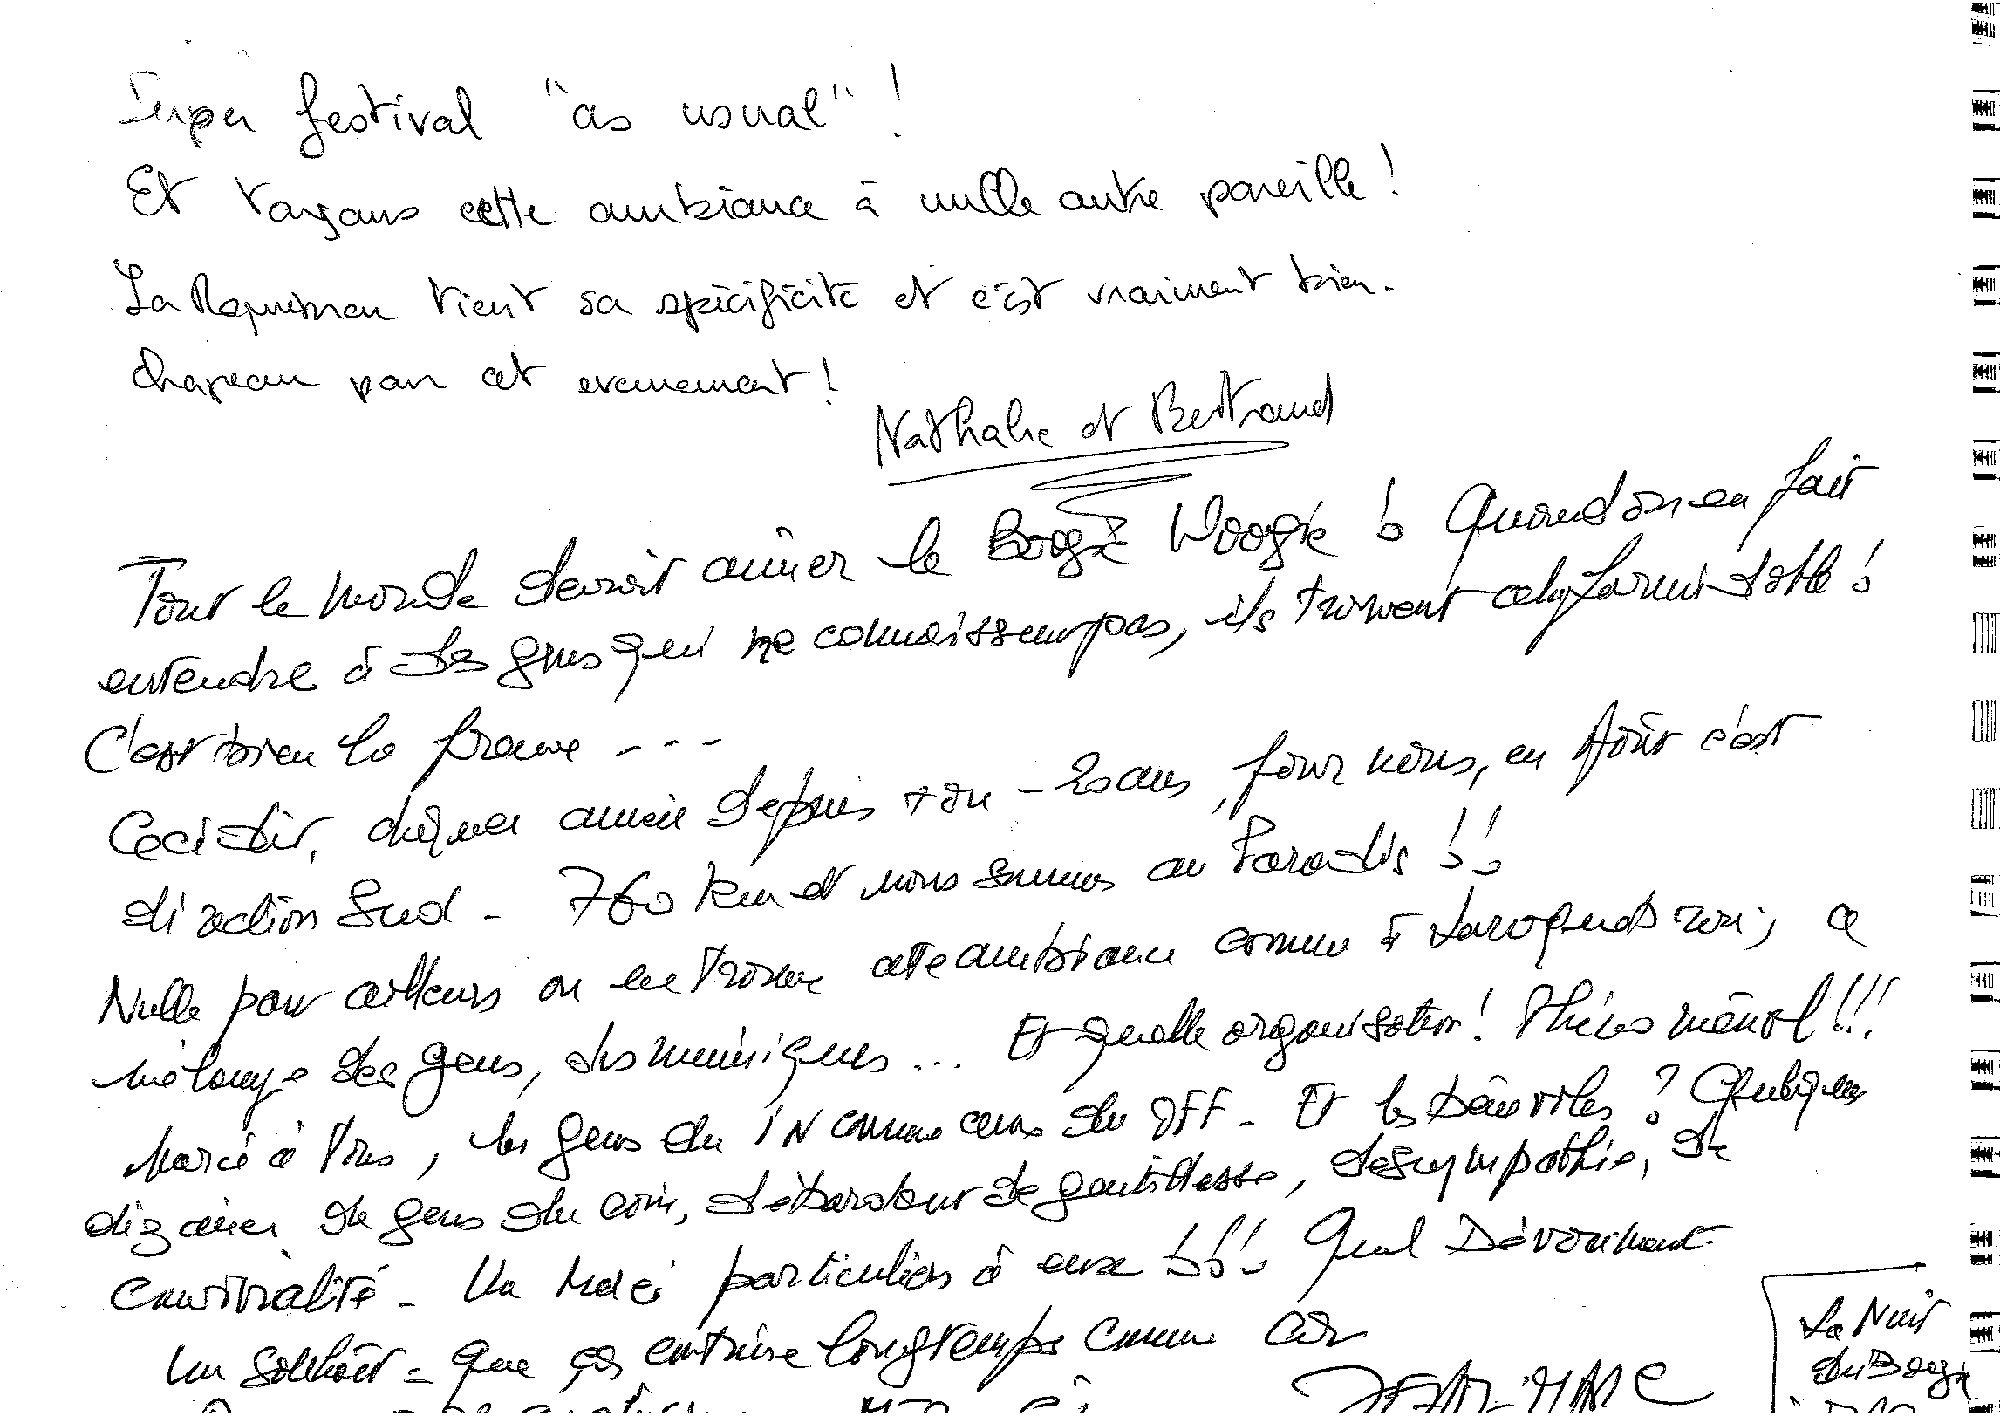 Super festival "as usual" !
Et toujours cette ambiance à nulle autre pareille !
La Roquebrou tient sa spécificité et c'est vraiment bien.
Chapeau pour cet evenement !
Nathalie et Bertrand
Tout le monde devrait aimer le Boogie Woogie ! Quand on en fait
entendre à des gens qui ne connaissent pas, ils trouvent cela formidable !
C'est bien la preuve ---
Ceci dit, chaque année depuis + ou - 20 ans, pour nous, en Août c'est
direction Sud - 760 km et nous sommes au Paradis !!
Nulle part ailleurs on ne trouve cette ambiance comme à Laroquebrou, ce
mélange des gens, des musiques... Et quelle organisation ! Phénoménal !!!
Merci à Vous, les gens du IN comme ceux du OFF - Et les Bénévoles ? Quelques
dizaines de gens du coin, débordant de gentillesse, de sympathie, de
convivialité - Un Merci particulier à eux !!! Quel Dévouement
Un souhait = Que ça continue longtemps comme ça
JEAN-MARC
La Nuit
du Boogie